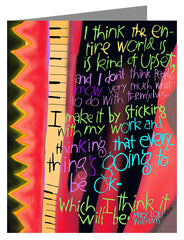 I think the en-
tire world is
is kind of upset,
and I don't think people
know very much what
to do with themselves.
I make it by sticking
with my work and
thinking that every
thing's going to
be ok-
which I think it
will be. Mary Lou
Williams